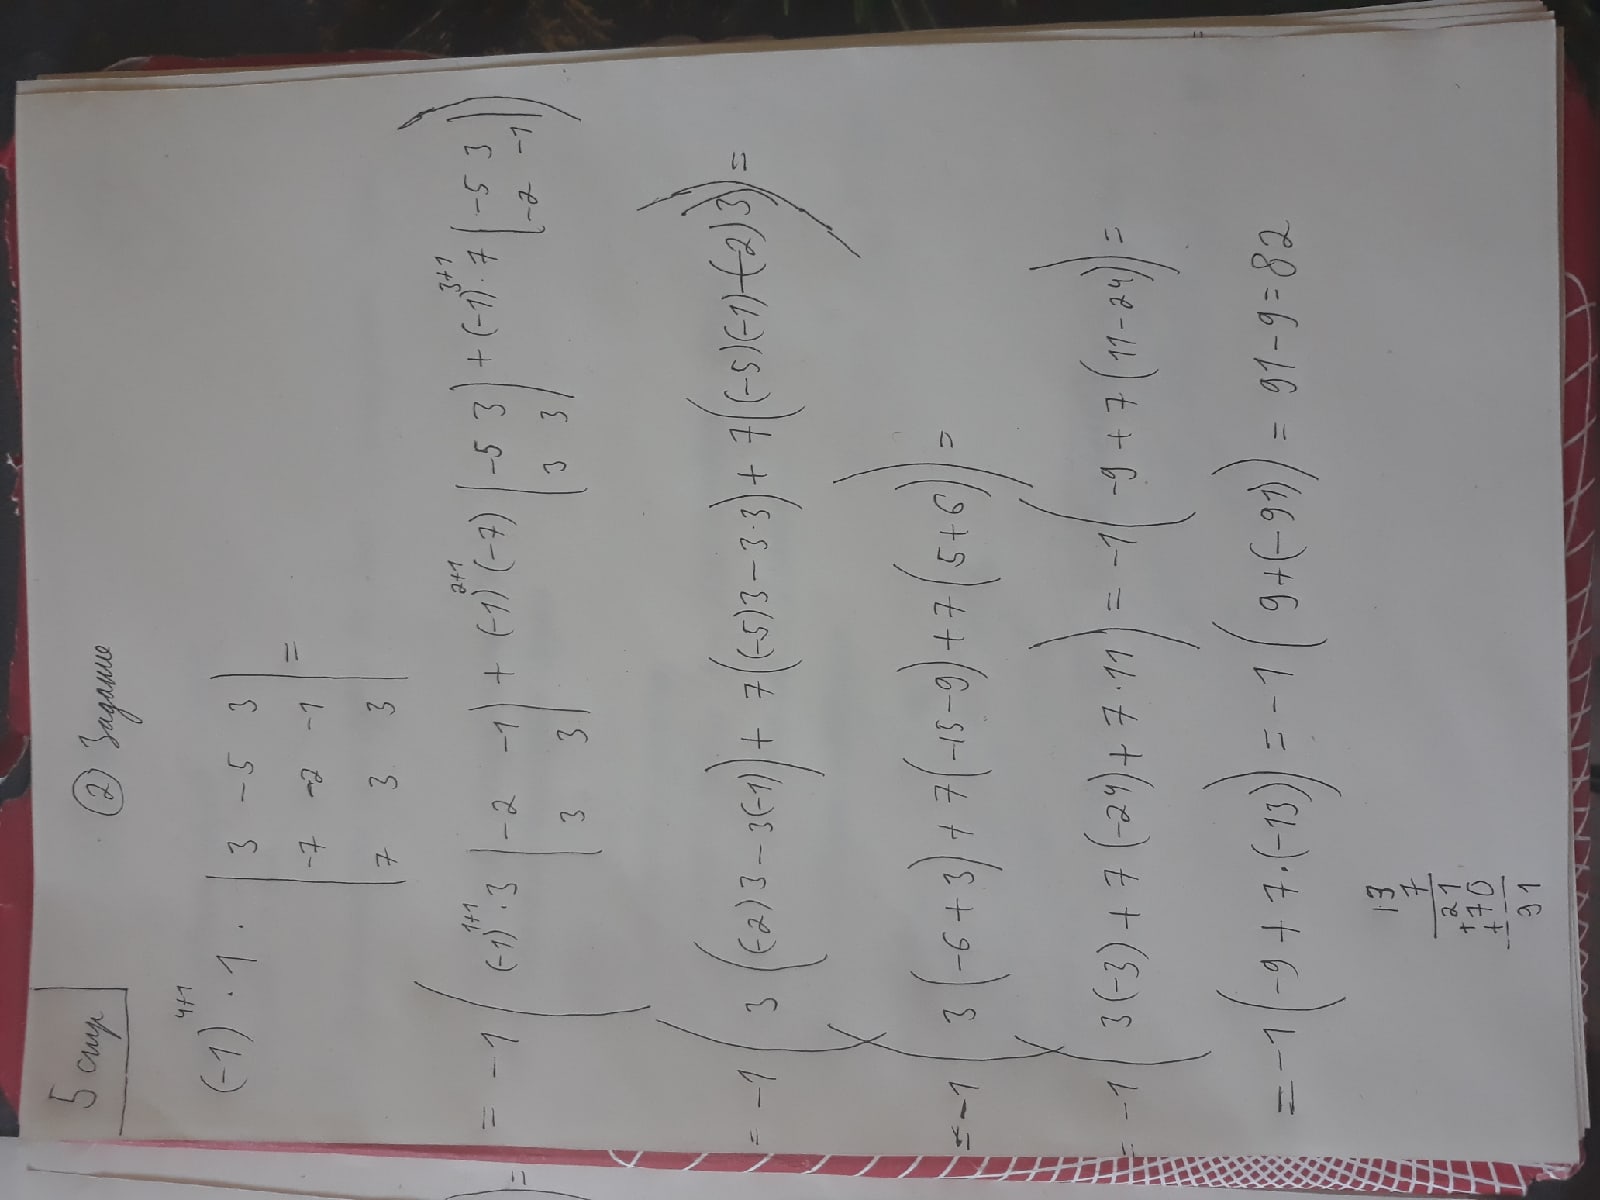 5 стр
② Задание
(-1)^{4+1} · 1 · | 3 -5 3 | =
| -7 -2 -1 |
| 7 3 3 |
= -1 ( (-1)^{1+1} · 3 | -2 -1 | + (-1)^{2+1} (-7) | -5 3 | + (-1)^{3+1} · 7 | -5 3 | )
| 3 3 | | 3 3 | | -2 -1 |
=
= -1 ( 3 ( (-2) 3 - 3(-1) ) + 7 ( (-5) 3 - 3·3 ) + 7 ( (-5)(-1) - (-2) 3 ) ) =
= -1 ( 3 ( -6 + 3 ) + 7 ( -15 - 9 ) + 7 ( 5 + 6 ) ) =
= -1 ( 3(-3) + 7 (-24) + 7 · 11 ) = -1 ( -9 + 7 ( 11 - 24 ) ) =
= -1 ( -9 + 7 · (-13) ) = -1 ( 9 + (-91) ) = 91 - 9 = 82
13
7
+ 21
+ 70
91